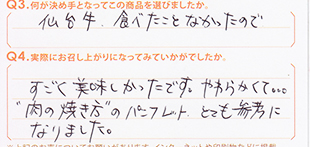 Q3.何が決め手となってこの商品を選びましたか。
仙台牛、食べたことなかったので
Q4.実際にお召し上がりになってみていかがでしたか。
すごく美味しかったです。やわらかくて。。。
"肉の焼き方"のパンフレット、とても参考に
なりました。